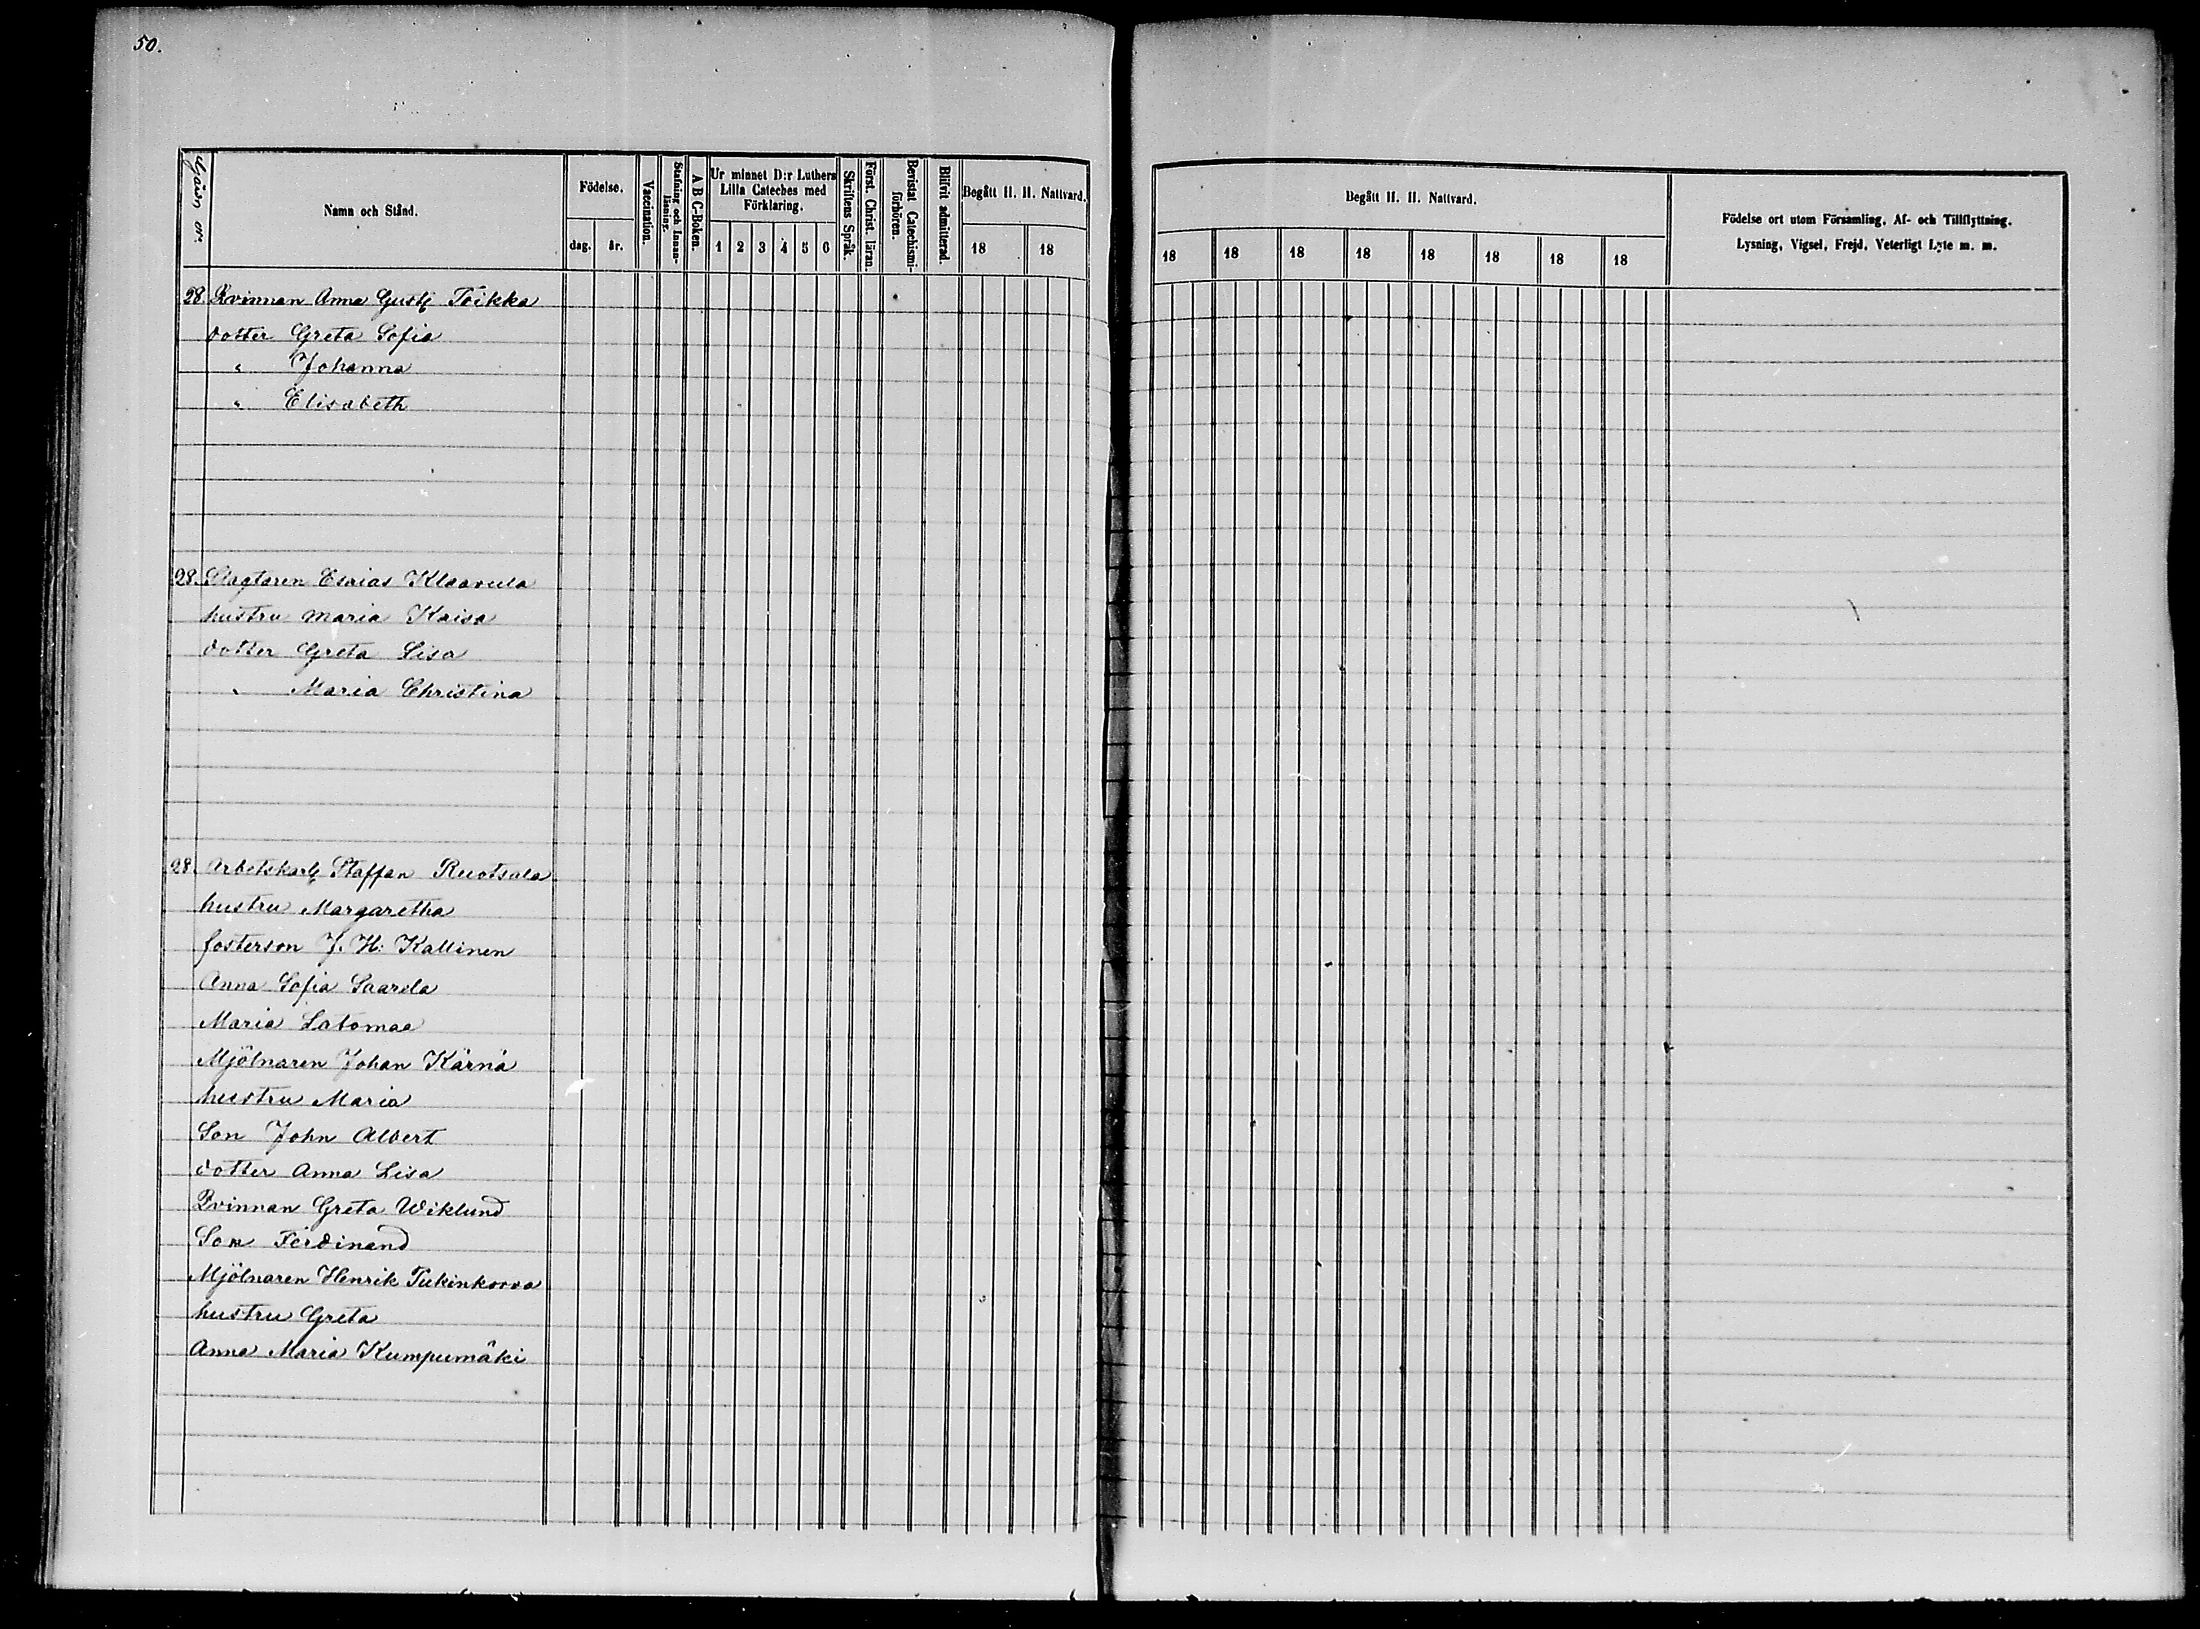 50.
Gård nr.
Namn och Stånd.
Födelse.
dag. år.
Vaccination.
Stafning och Innanläsning.
A B C-Boken.
Ur minnet D:r Luthers
Lilla Cateches med
Förklaring.
1 2 3 4 5 6
Skriftens Språk.
Först. Christ. läran.
Bevistat Catechismi-
förhören.
Blifvit admitterad.
Begått H. H. Nattvard.
18 18
Begått H. H. Nattvard.
18 18 18 18 18 18 18 18
Födelse ort utom Församling, Af- och Tillflyttning.
Lysning, Vigsel, Frejd, Veterligt Lyte m. m.
28 Qvinnan Anna Gust Toikka
dotter Greta Sofia
" Johanna
" Elisabeth
28. Slagtaren Esaias Klaavula
hustru Maria Kaisa
dotter Greta Lisa
" Maria Christina
28. Arbetskarl Staffan Ruotsala
hustru Margaretha
fosterson J. H: Kallinen
Anna Sofia Saarela
Maria Latomaa
Mjölnaren Johan Kärnä
hustru Maria
Son John Albert
dotter Anna Lisa
Qvinnan Greta Wiklund
Son Ferdinand
Mjölnaren Henrik
hustru Greta
Anna Maria Kumpumäki